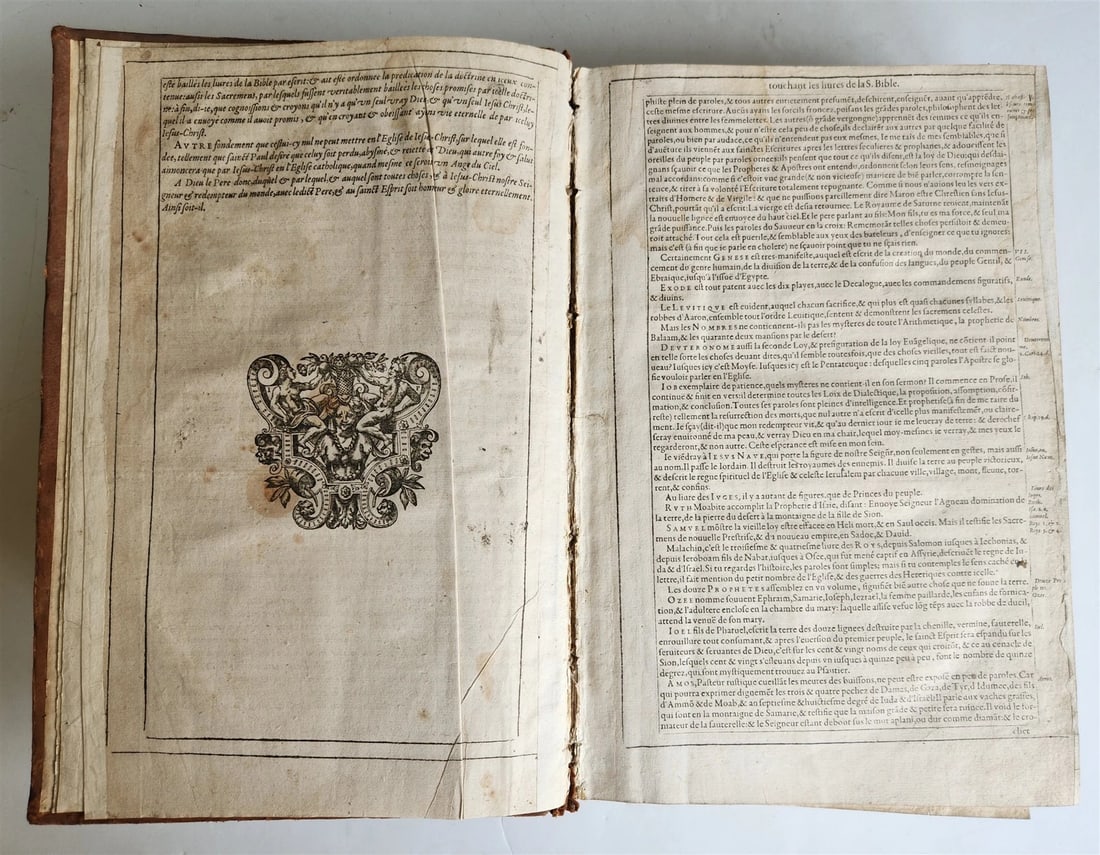 esté baillés les liures de la Bible par escrit: & ait esté ordonnee la predication de la doctrine en iceux con-
tenue: aussi les Sacremens, par lesquels fussent veritablement baillees les choses promises par icelle doctri-
ne: à fin, di-ie, que cognoissions & croyons qu'il n'y a qu'vn seul vray Dieu, & qu'vn seul Iesus Christ le-
quel il a enuoyé comme il auoit promis, & qu'en croyant & obeissant ayons vie eternelle de par iceluy
Iesus-Christ.
AVTRE fondement que cestui-cy nul ne peut mettre en l'Eglise de Iesus-Christ, sur lequel elle est fon-
dee, tellement que sainct Paul desire que celuy soit perdu, abysmé, & reietté de Dieu, qui autre foy & salut
annoncera, que par Iesus-Christ en l'Eglise catholique, quand mesme ce seroit vn Ange du Ciel.
A Dieu le Pere donc, duquel & par lequel, & auquel sont toutes choses, & à Iesus-Christ nostre Sei-
gneur & redempteur du monde, auec ledict Pere, & au sainct Esprit soit honneur & gloire eternellement.
Ainsi soit-il.
touchant les liures de la S. Bible.
phiste plein de paroles, & tous autres entierement presumēt, deschirent, enseignēt, auant qu'apprēdre,
ceste mesme escriture. Aucūs ayans les sorcils froncez, poisans les grādes paroles, philosophent des let-
tres diuines entre les femmelettes. Les autres (ô grāde vergongne) apprennēt des femmes ce qu'ils en-
seignent aux hommes, & pour n'estre cela peu de chose, ils declairēt aux autres par quelque facilité de
paroles, ou bien par audace, ce qu'ils n'entendent pas eux mesmes. Ie me tais de mes semblables, que si
d'auēture ils viennēt aux sainctes Escritures apres les lettres seculieres & prophanes, & adoucissent les
oreilles du peuple par paroles ornees: ils pensent que tout ce qu'ils disent, est la loy de Dieu: qui desdai-
gnans sçauoir ce que les Prophetes & Apostres ont entendu, ordonnent selon leurs sens, tesmoignages
mal accordans: comme si c'estoit vne grande (& non vicieuse) maniere de biē parler, corrompre la sen-
tence, & tirer à sa volonté l'Escriture totalement repugnante. Comme si nous n'auions leu les vers ex-
traits d'Homere & de Virgile: & que ne puissions pareillement dire Maron estre Chrestien sans Iesus-
Christ, pourtāt qu'il a escrit: La vierge est desia retournee. Le Royaume de Saturne reuient, maintenāt
la nouuelle lignee est enuoyee du haut ciel. Et le pere parlant au fils: Mon fils, tu es ma force, & seul ma
grāde puissance. Puis les paroles du Sauueur en la croix: Rememorāt telles choses persistoit & demeu-
roit attaché. Tout cela est puerile, & semblable aux yeux des bateleurs, d'enseigner ce que tu ignores:
mais c'est (à fin que ie parle en cholere) ne sçauoir point que tu ne sçais rien.
Certainement GENESE est tres-manifeste, auquel est escrit de la creation du monde, du commen-
cement du genre humain, de la diuision de la terre, & de la confusion des langues, du peuple Gentil, &
Ebraique, iusqu'à l'issuë d'Egypte.
EXODE est tout patent auec les dix playes, auec le Decalogue, auec les commandemens figuratifs,
& diuins.
Le LEVITIQVE est euident, auquel chacun sacrifice, & qui plus est quasi chacunes syllabes, & les
robbes d'Aaron, ensemble tout l'ordre Leuitique, sentent & demonstrent les sacremens celestes.
Mais les NOMBRES ne contiennent-ils pas les mysteres de toute l'Arithmetique, la prophetie de
Balaam, & les quarante deux mansions par le desert?
DEVTERONOME aussi la seconde Loy, & prefiguration de la loy Euāgelique, ne cōtient-il point
en telle sorte les choses deuant dites, qu'il semble toutesfois, que des choses vieilles, tout est faict nou-
ueau? Iusques icy c'est Moyse. Iusques icy est le Pentateuque: desquelles cinq paroles l'Apostre se glo-
fie vouloir parler en l'Eglise.
IOB exemplaire de patience, quels mysteres ne contient-il en son sermon? Il commence en Prose, il
continuë & finit en vers: il determine toutes les Loix de Dialectique, la proposition, assomption, cōfir-
mation, & conclusion. Toutes ses paroles sont pleines d'intelligence. Et prophetise (à fin de me taire du
reste) tellement la resurrection des morts, que nul autre n'a escrit d'icelle plus manifestemēt, ou claire-
ment. Ie sçay (dit-il) que mon redempteur vit, & qu'au dernier iour ie me leueray de terre: & derechef
seray enuironné de ma peau, & verray Dieu en ma chair, lequel moy-mesmes ie verray, & mes yeux le
regarderont, & non autre. Ceste esperance est mise en mon sein.
Ie viēdray à IESVS NAVE, qui porte la figure de nostre Seignr, non seulement en gestes, mais aussi
au nom. Il passe le Iordain. Il destruit les royaumes des ennemis. Il diuise la terre au peuple victorieux,
& descrit le regne spirituel de l'Eglise & celeste Ierusalem par chacune ville, village, mont, fleuue, tor-
rent, & confins.
Au liure des IVGES, il y a autant de figures, que de Princes du peuple.
RVTH Moabite accomplit la Prophetie d'Isaie, disant: Enuoye Seigneur l'Agneau domination de
la terre, de la pierre du desert à la montaigne de la fille de Sion.
SAMVEL mōstre la vieille loy estre effacee en Heli mort, & en Saul occis. Mais il testifie les Sacre-
mens de nouuelle Prestrise, & du nouueau empire, en Sadoc, & Dauid.
Malachin, c'est le troisiesme & quatriesme liure des ROYS, depuis Salomon iusques à Iechonias, &
depuis Ieroboam fils de Nabat, iusques à Osee, qui fut mené captif en Assyrie, descriuēt le regne de Iu-
da & d'Israel. Si tu regardes l'histoire, les paroles sont simples: mais si tu contemples le sens caché en la
lettre, il fait mention du petit nombre de l'Eglise, & des guerres des Heretiques contre icelle.
Les douze PROPHETES assemblez en vn volume, signifiēt biē autre chose que ne sonne la terre.
OZEE nomme souuent Ephraim, Samarie, Ioseph, Iezrael, la femme paillarde, les enfans de fornica-
tion, & l'adultere enclose en la chambre du mary: laquelle assise vefue lōg tēps auec la robbe de dueil,
attend la venuë de son mary.
IOEL fils de Phatuel, escrit la terre des douze lignees destruite par la chenille, vermine, sauterelle,
enrouillure tout consumant, & apres l'euersion du premier peuple, le sainct Esprit sera espandu sur les
seruiteurs & seruantes de Dieu, c'est sur les cent & vingt noms de ceux qui croirōt, & ce au cenacle de
Sion, lesquels cent & vingt s'esleuans depuis vn iusques à quinze peu à peu, font le nombre de quinze
degrez, qui sont mystiquement trouuez au Psautier.
AMOS, Pasteur rustique cueillāt les meures des buissons, ne peut estre exposé en peu de paroles. Car
qui pourra exprimer dignemēt les trois & quatre pechez de Damas, de Gaza, de Tyr, d'Idumee, des fils
d'Ammō & de Moab, & au septiesme & huictiesme degré de Iuda & d'Israel? Il parle aux vaches grasses,
qui sont en la montaigne de Samarie, & testifie que la maison grāde & petite sera ruinee. Il void le for-
mateur de la sauterelle: & le Seigneur estant debout sus le mur aplani, ou dur comme diamāt: & le cro-
chet
VII.
Genese.
Exode.
Leuitique.
Nombres.
Iob.
Ioel.
Amos.